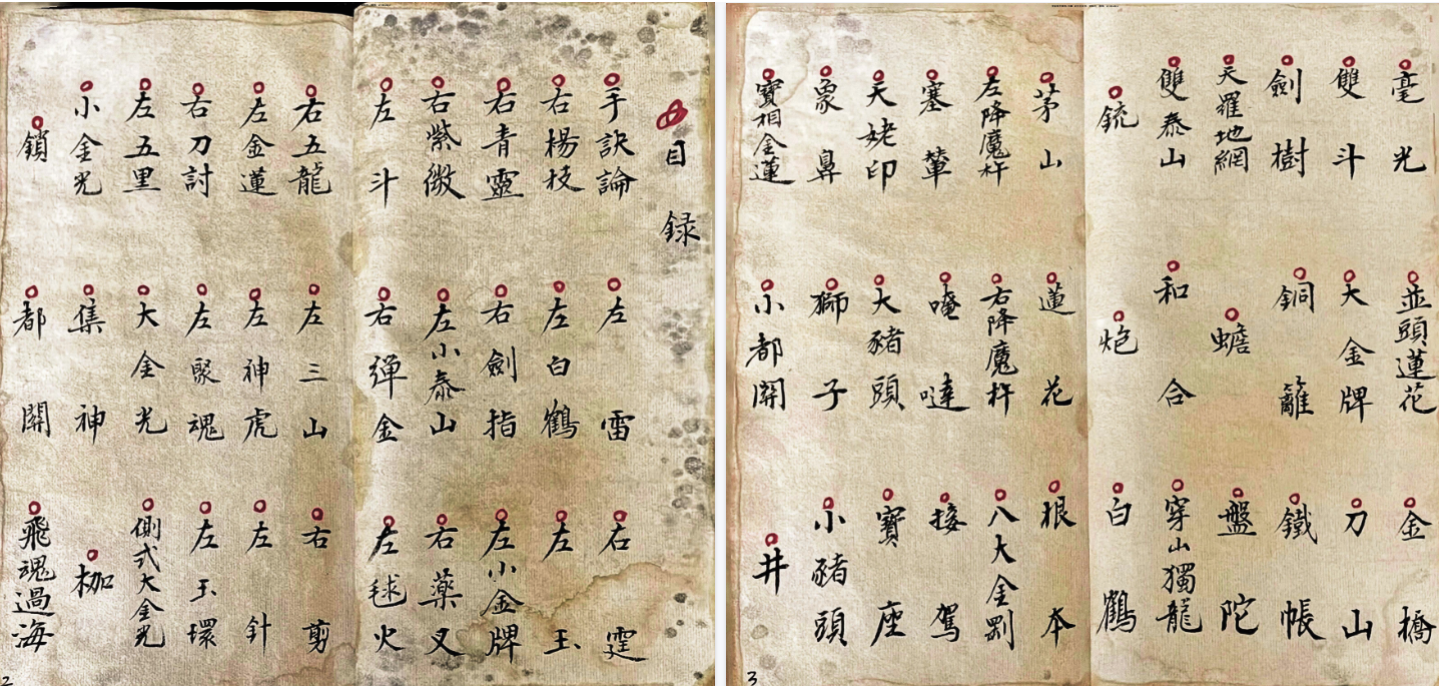 目録
手訣論 左雷 右霆
右楊枝 左白鶴 左玉
右青靈 右劍指 左小金牌
右紫微 左小泰山 右薬叉
左斗 右弾金 左毬火
右五龍 左三山 右剪
左金蓮 左神虎 左針
右刀討 左聚魂 左玉環
左五里 大金光 側式大金光
小金光 集神 枷
鎖 都關 飛魂過海
2
毫光 並頭蓮花 金橋
雙斗 大金牌 刀山
劍樹 銅籬 鐵帳
天羅地網 蟾 盤陀
雙泰山 和合 穿山獨龍
銃 炮 白鶴
茅山 蓮花 根本
左降魔杵 右降魔杵 八大金剛
塞犖 唵噠 接駕
天姥印 大豬頭 寶座
象鼻 獅子 小豬頭
寶相金蓮 小都關 井
3